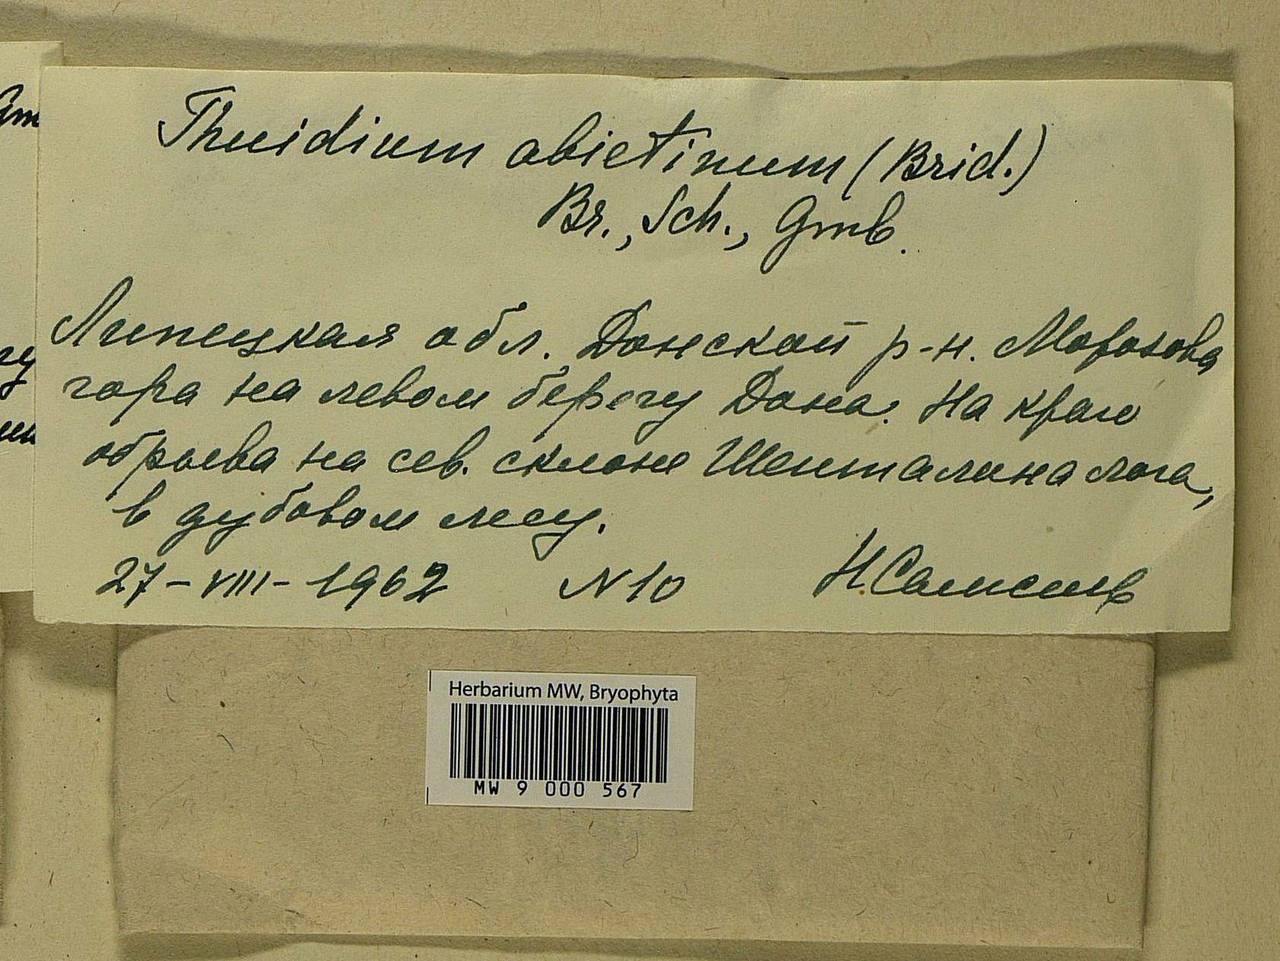 Thuidium abietinum (Brid.)
Br., Sch., Gmb.
Липецкая обл. Донской р-н. Морозова
гора на левом берегу Дона. На краю
обрыва на сев. склоне Шенталина лога,
в дубовом лесу.
27-VIII-1962 N10 Н.
Herbarium MW, Bryophyta
MW 9 000 567